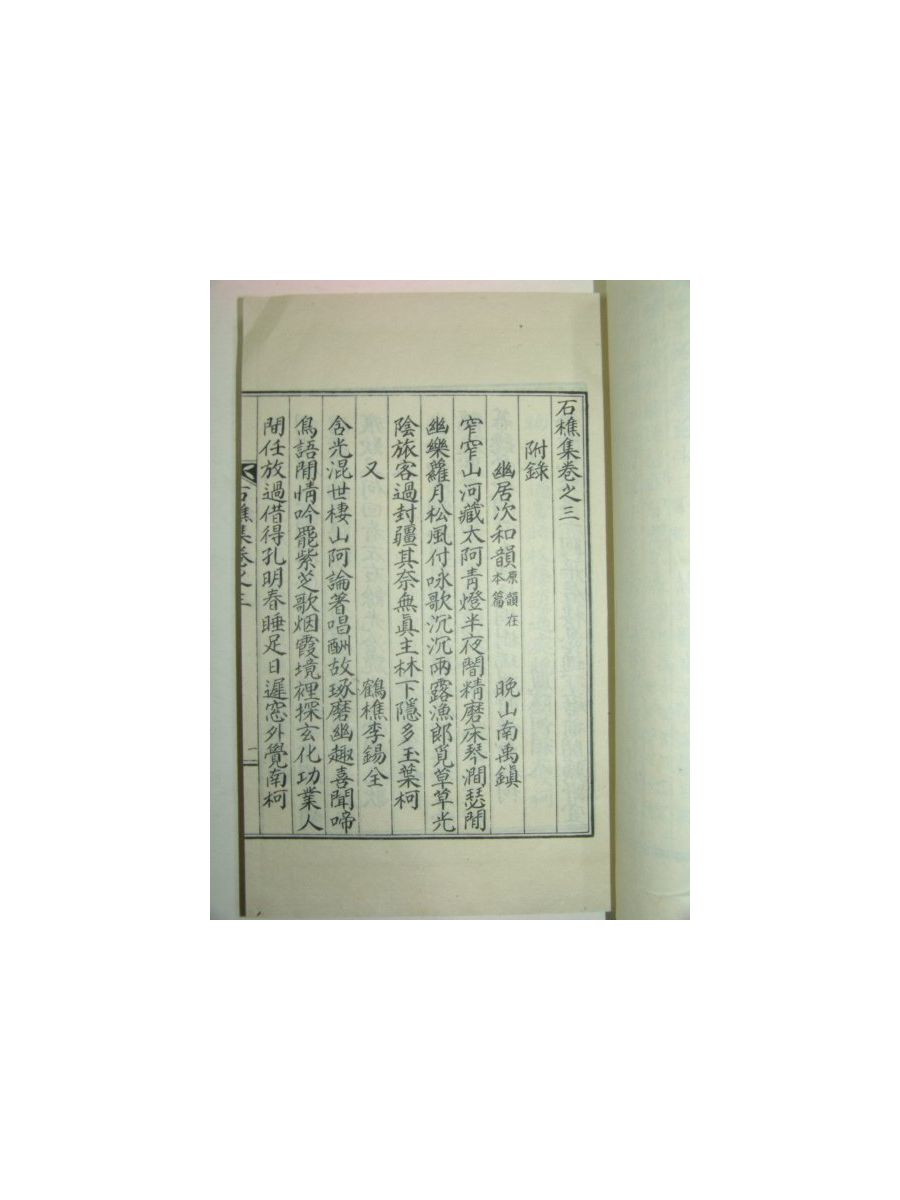 石樵集卷之三
附錄
幽居次和韻 原韻在本篇 晚山南禹鎭
窄窄山河藏太阿青燈半夜闇精磨床琴澗瑟閒
幽樂蘿月松風付咏歌沉沉雨露漁郎覓草草光
陰旅客過封疆其奈無眞主林下隱多玉葉柯
又 鶴樵李錫全
含光混世棲山阿論著唱酬故琢磨幽趣喜聞啼
鳥語閒情吟罷紫芝歌烟霞境裡探玄化功業人
間任放過借得孔明春睡足日遲窓外覺南柯
石樵集卷之三
一